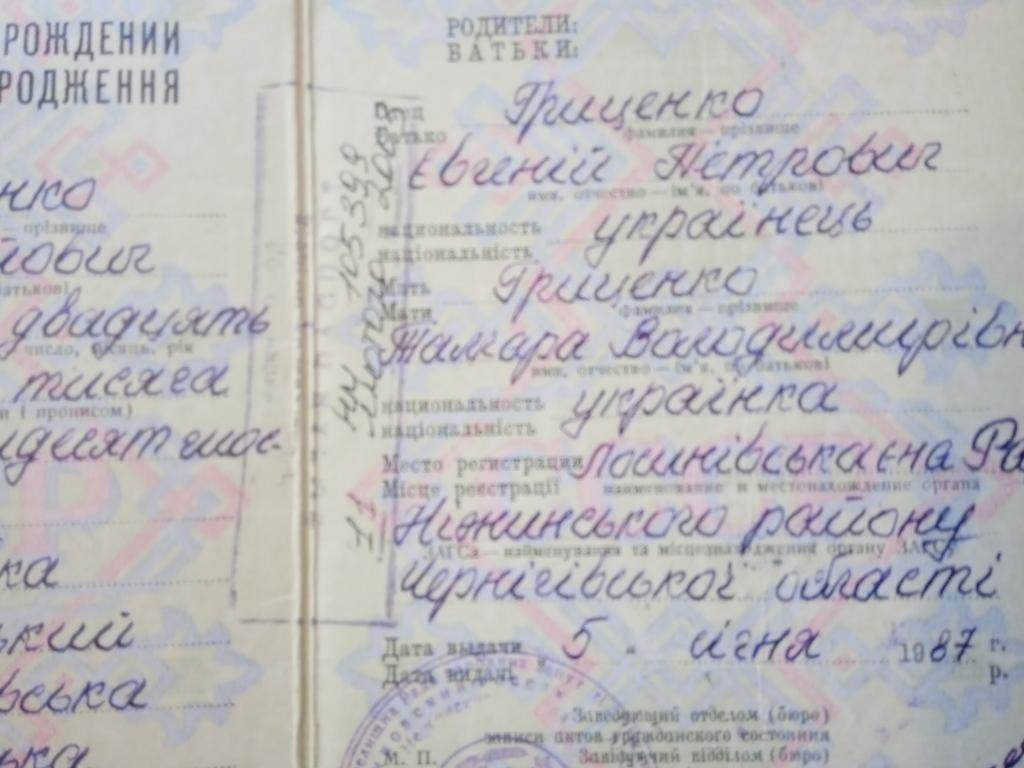 РОЖДЕНИИ
РОДЖЕННЯ
нко
прізвище
йович
батькові
двадцять
число, місяць, рік
тисяча
и і прописом)
идесят шос-
ка
ький
вська
ька
РОДИТЕЛИ:
БАТЬКИ:
Отец Гриценко
Батько фамилия — прізвище
Євгеній Петрович
имя, отчество — ім'я, по батькові
национальность українець
національність
Мать Гриценко
Мати фамилия — прізвище
Тамара Володимирівн
имя, отчество — ім'я, по батькові
национальность українка
національність
Место регистрации Лосинівська
Місце реєстрації наименование и местонахождение органа
Ніжинського району
ЗАГСа — найменування та місцезнаходження органу ЗАГСу
Чернігівської області
Дата выдачи 5 " січня 1987 г.
Дата видачі р.
Заведующий отделом (бюро)
записи актов гражданского состояния
М. П. Завідуючий відділом (бюро)
ПАСПОРТ
НМ 105399
лютого 200